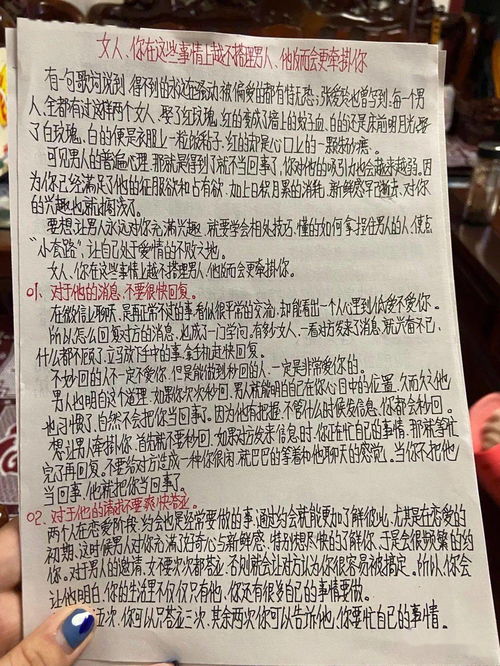 女人、你在这些事情上越不搭理男人、他反而会更牵掛你
有一句歌词说到 得不到的永远在骚动、被偏爱的都有恃无恐；张爱玲也曾写到、每一个男
人、全都有过这样两个女人、娶了红玫瑰、红的变成了墙上的蚊子血、白的还是床前明月光；娶
了白玫瑰、白的便是衣服上一粒饭粘子、红的却是心口上的一颗朱砂痣。
可见男人的普遍心理、那就是得到了就不当回事了、你对他的吸引力也会越来越弱。因
为你已经满足了他的征服欲和占有欲、加上日积月累的消耗、新鲜感早已褪去、对你
的兴趣也就阑浅了。
要想让男人永远对你充满兴趣、就要学会相处技巧、懂的如何拿捏住男人的人、使点
"小套路"、让自己处于爱情的不败之地。
女人、你在这些事情上越不搭理男人、他反而会更牵掛你。
01、对于他的消息、不要很快回复。
在微信上聊天、是再正常不过的事、看似很平常的交流、却能看出一个人心里到底爱不爱你。
所以怎么回复对方的消息、也成了一门学问。有多少女人、一看对方发来了消息、就兴奋不已、
什么都不顾了、立马放下手中的事、拿手机赶快回复。
不妙回的人不一定不爱你、但是能做到秒回的人、一定是非常爱你的。
男人也明白这个道理、如果你次次秒回、男人就能明白自己在你心目中的位置、久而久之他
也习惯了、自然不会把你当回事了。因为他有把握、不管什么时候发信息、你都会秒回。
想让男人牵掛你、首先就不要秒回、如果对方发来信息时、你正在忙自己的事情、那就等忙
完了再回复。不要给对方造成一种你很闲、就巴巴的等着和他聊天的感觉、当你不把他
当回事、他就把你当回事了。
02、对于他的请求、不要爽快答应。
两个人在恋爱阶段、约会也是经常要做的事、通过约会就能更加了解彼此、尤其是在恋爱的
初期、这时候男人对你充满了好奇心与新鲜感、特别想尽快的了解你、于是会很频繁的约
你。对于男人的邀请、女人要次次都答应、否则就会让对方认为你很容易被搞定。所以、你会
让他明白、你的生活里不仅仅只有他、你还有很多自己的事情要做。
五次、你可以只答应三次、其余两次你可以告诉他、你要忙自己的事情。